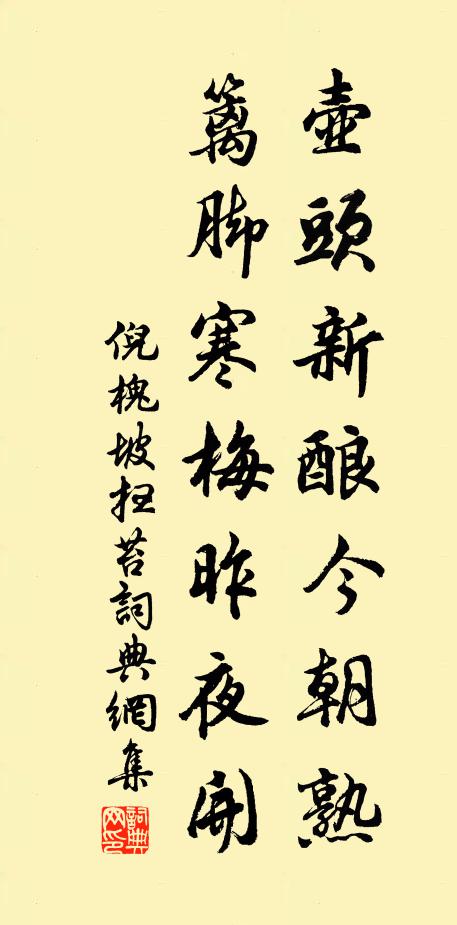 壺頭新酿今朝熟
籬脚寒梅昨夜開
倪槐坡抂苔詞典網集
詞典網印